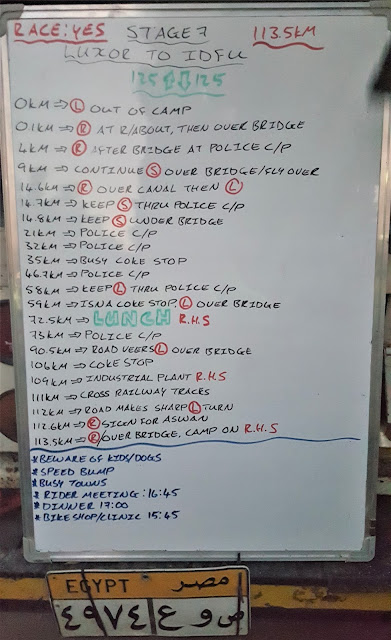 RACE: YES STAGE 7 113.5KM
LUXOR TO IDFU
125 ⇧⇩ 125
0KM ⇒ L OUT OF CAMP
0.1KM ⇒ R AT R/ABOUT, THEN OVER BRIDGE
4KM ⇒ R AFTER BRIDGE AT POLICE C/P
9KM ⇒ CONTINUE S OVER BRIDGE/FLY OVER
14.6KM ⇒ R OVER CANAL THEN L
14.7KM ⇒ KEEP S THRU POLICE C/P
14.8KM ⇒ KEEP S UNDER BRIDGE
21KM ⇒ POLICE C/P
32KM ⇒ POLICE C/P
35KM ⇒ BUSY COKE STOP
46.7KM ⇒ POLICE C/P
58KM ⇒ KEEP L THRU POLICE C/P
59KM ⇒ ISNA COKE STOP, L OVER BRIDGE
72.5KM ⇒ LUNCH R.H.S
73KM ⇒ POLICE C/P
90.5KM ⇒ ROAD VEERS L OVER BRIDGE
106KM ⇒ COKE STOP
109KM ⇒ INDUSTRIAL PLANT R.H.S
111KM ⇒ CROSS RAILWAY TRACKS
112KM ⇒ ROAD MAKES SHARP L TURN
112.6KM ⇒ R SIGN FOR ASWAN
113.5KM ⇒ R/OVER BRIDGE, CAMP ON R.H.S
* BEWARE OF KIDS/DOGS
* SPEED BUMP
* BUSY TOWNS
* RIDER MEETING: 16:45
* DINNER 17:00
* BIKE SHOP/CLINIC 15:45
EGYPT مصر
٤٩٧٤ ص و ع